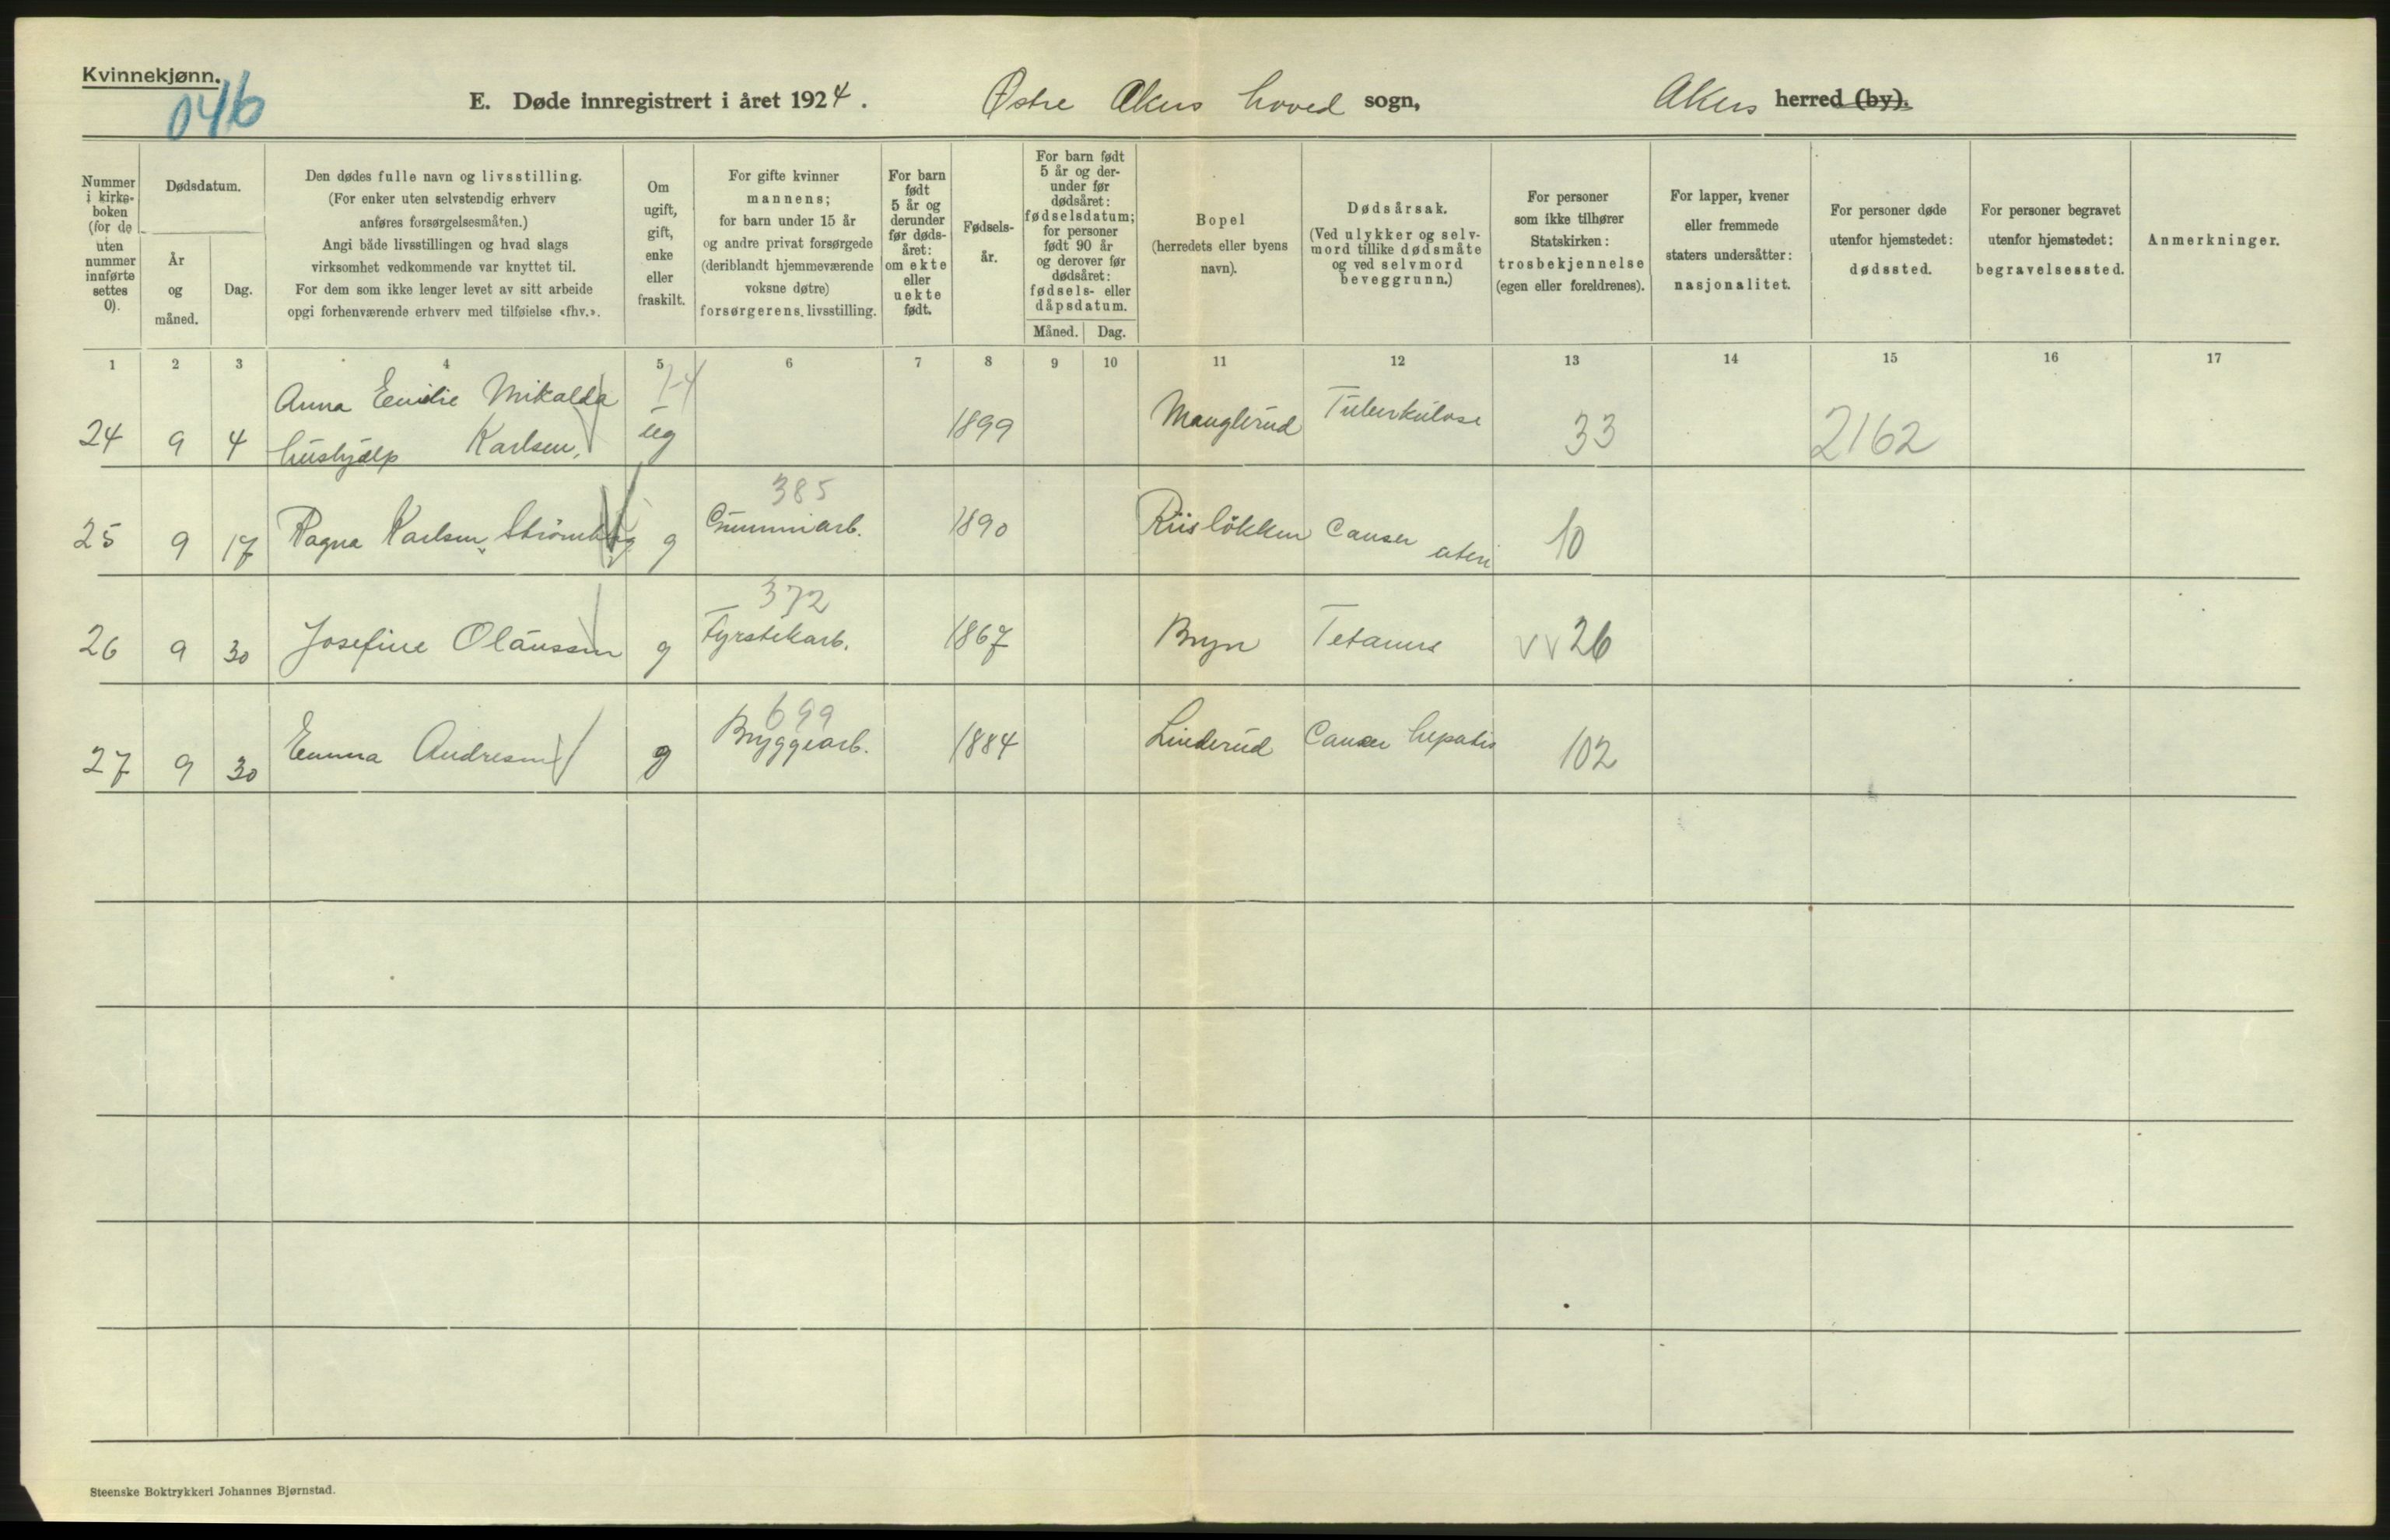 Kvinnekjønn.
046
E. Døde innregistrert i året 1924. Østre Akers hoved sogn, Akers herred (by).
Nummer i kirkeboken (for de uten nummer innførte settes 0).
Dødsdatum.
År og måned.
Dag.
Den dødes fulle navn og livsstilling.
(For enker uten selvstendig erhverv
anføres forsørgelsesmåten.)
Angi både livsstillingen og hvad slags
virksomhet vedkommende var knyttet til.
For dem som ikke lenger levet av sitt arbeide
opgi forhenværende erhverv med tilføielse «fhv.».
Om ugift, gift, enke eller fraskilt.
For gifte kvinner
mannens;
for barn under 15 år
og andre privat forsørgede
(deriblandt hjemmeværende
voksne døtre)
forsørgerens livsstilling.
For barn født 5 år og derunder før dødsåret: om ekte eller uekte født.
Fødselsår.
For barn født 5 år og derunder før dødsåret: fødselsdatum; for personer født 90 år og derover før dødsåret: fødsels- eller dåpsdatum.
Måned. Dag.
Bopel
(herredets eller byens
navn).
Dødsårsak.
(Ved ulykker og selvmord tillike dødsmåte og ved selvmord beveggrunn.)
For personer
som ikke tilhører
Statskirken:
trosbekjennelse
(egen eller foreldrenes).
For lapper, kvener
eller fremmede
staters undersåtter:
nasjonalitet.
For personer døde
utenfor hjemstedet:
dødssted.
For personer begravet
utenfor hjemstedet:
begravelsessted.
Anmerkninger.
1 2 3 4 5 6 7 8 9 10 11 12 13 14 15 16 17
Anna Emilie Mikalda
24 9 4 hushjælp Karlsen, ug 1899 Manglerud Tuberkulose 33 2162
385
25 9 17 Ragna Karlsen Strømberg g Gummiarb. 1890 Riisløkken Canser uteri 10
372
26 9 30 Josefine Olaussen g Fyrstekarb. 1867 Bryn Tetanus vv 26
699
27 9 30 Emma Andresen g Bryggearb. 1884 Linderud Canser hepatis 102
Steenske Boktrykkeri Johannes Bjørnstad.